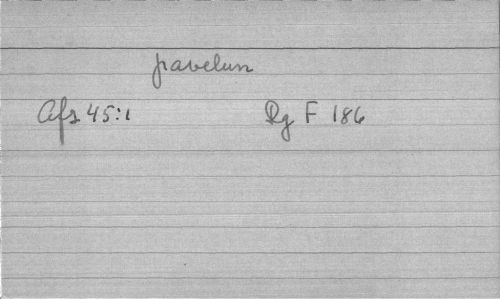 pavelun
Afs 45:1 Rg F 186